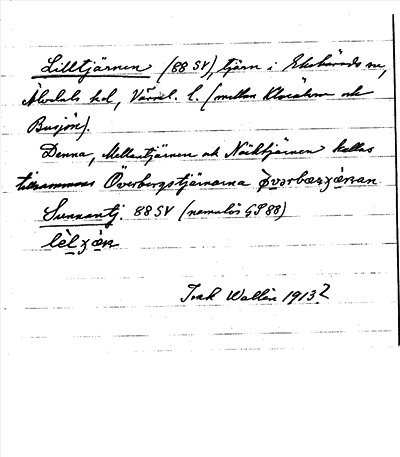 Lilltjärnen (88 SV), tjärn i Ekshärads sn,
Älvdals hd, Värml. l. (mellan Klarälven och
Busjön).
Denna, Mellantjärnen och Näcktjärnen kallas
tillsammans Överbergstjärnarna
Sunnantj. 88 SV (namnlös GS 88)
Wallin 1913?